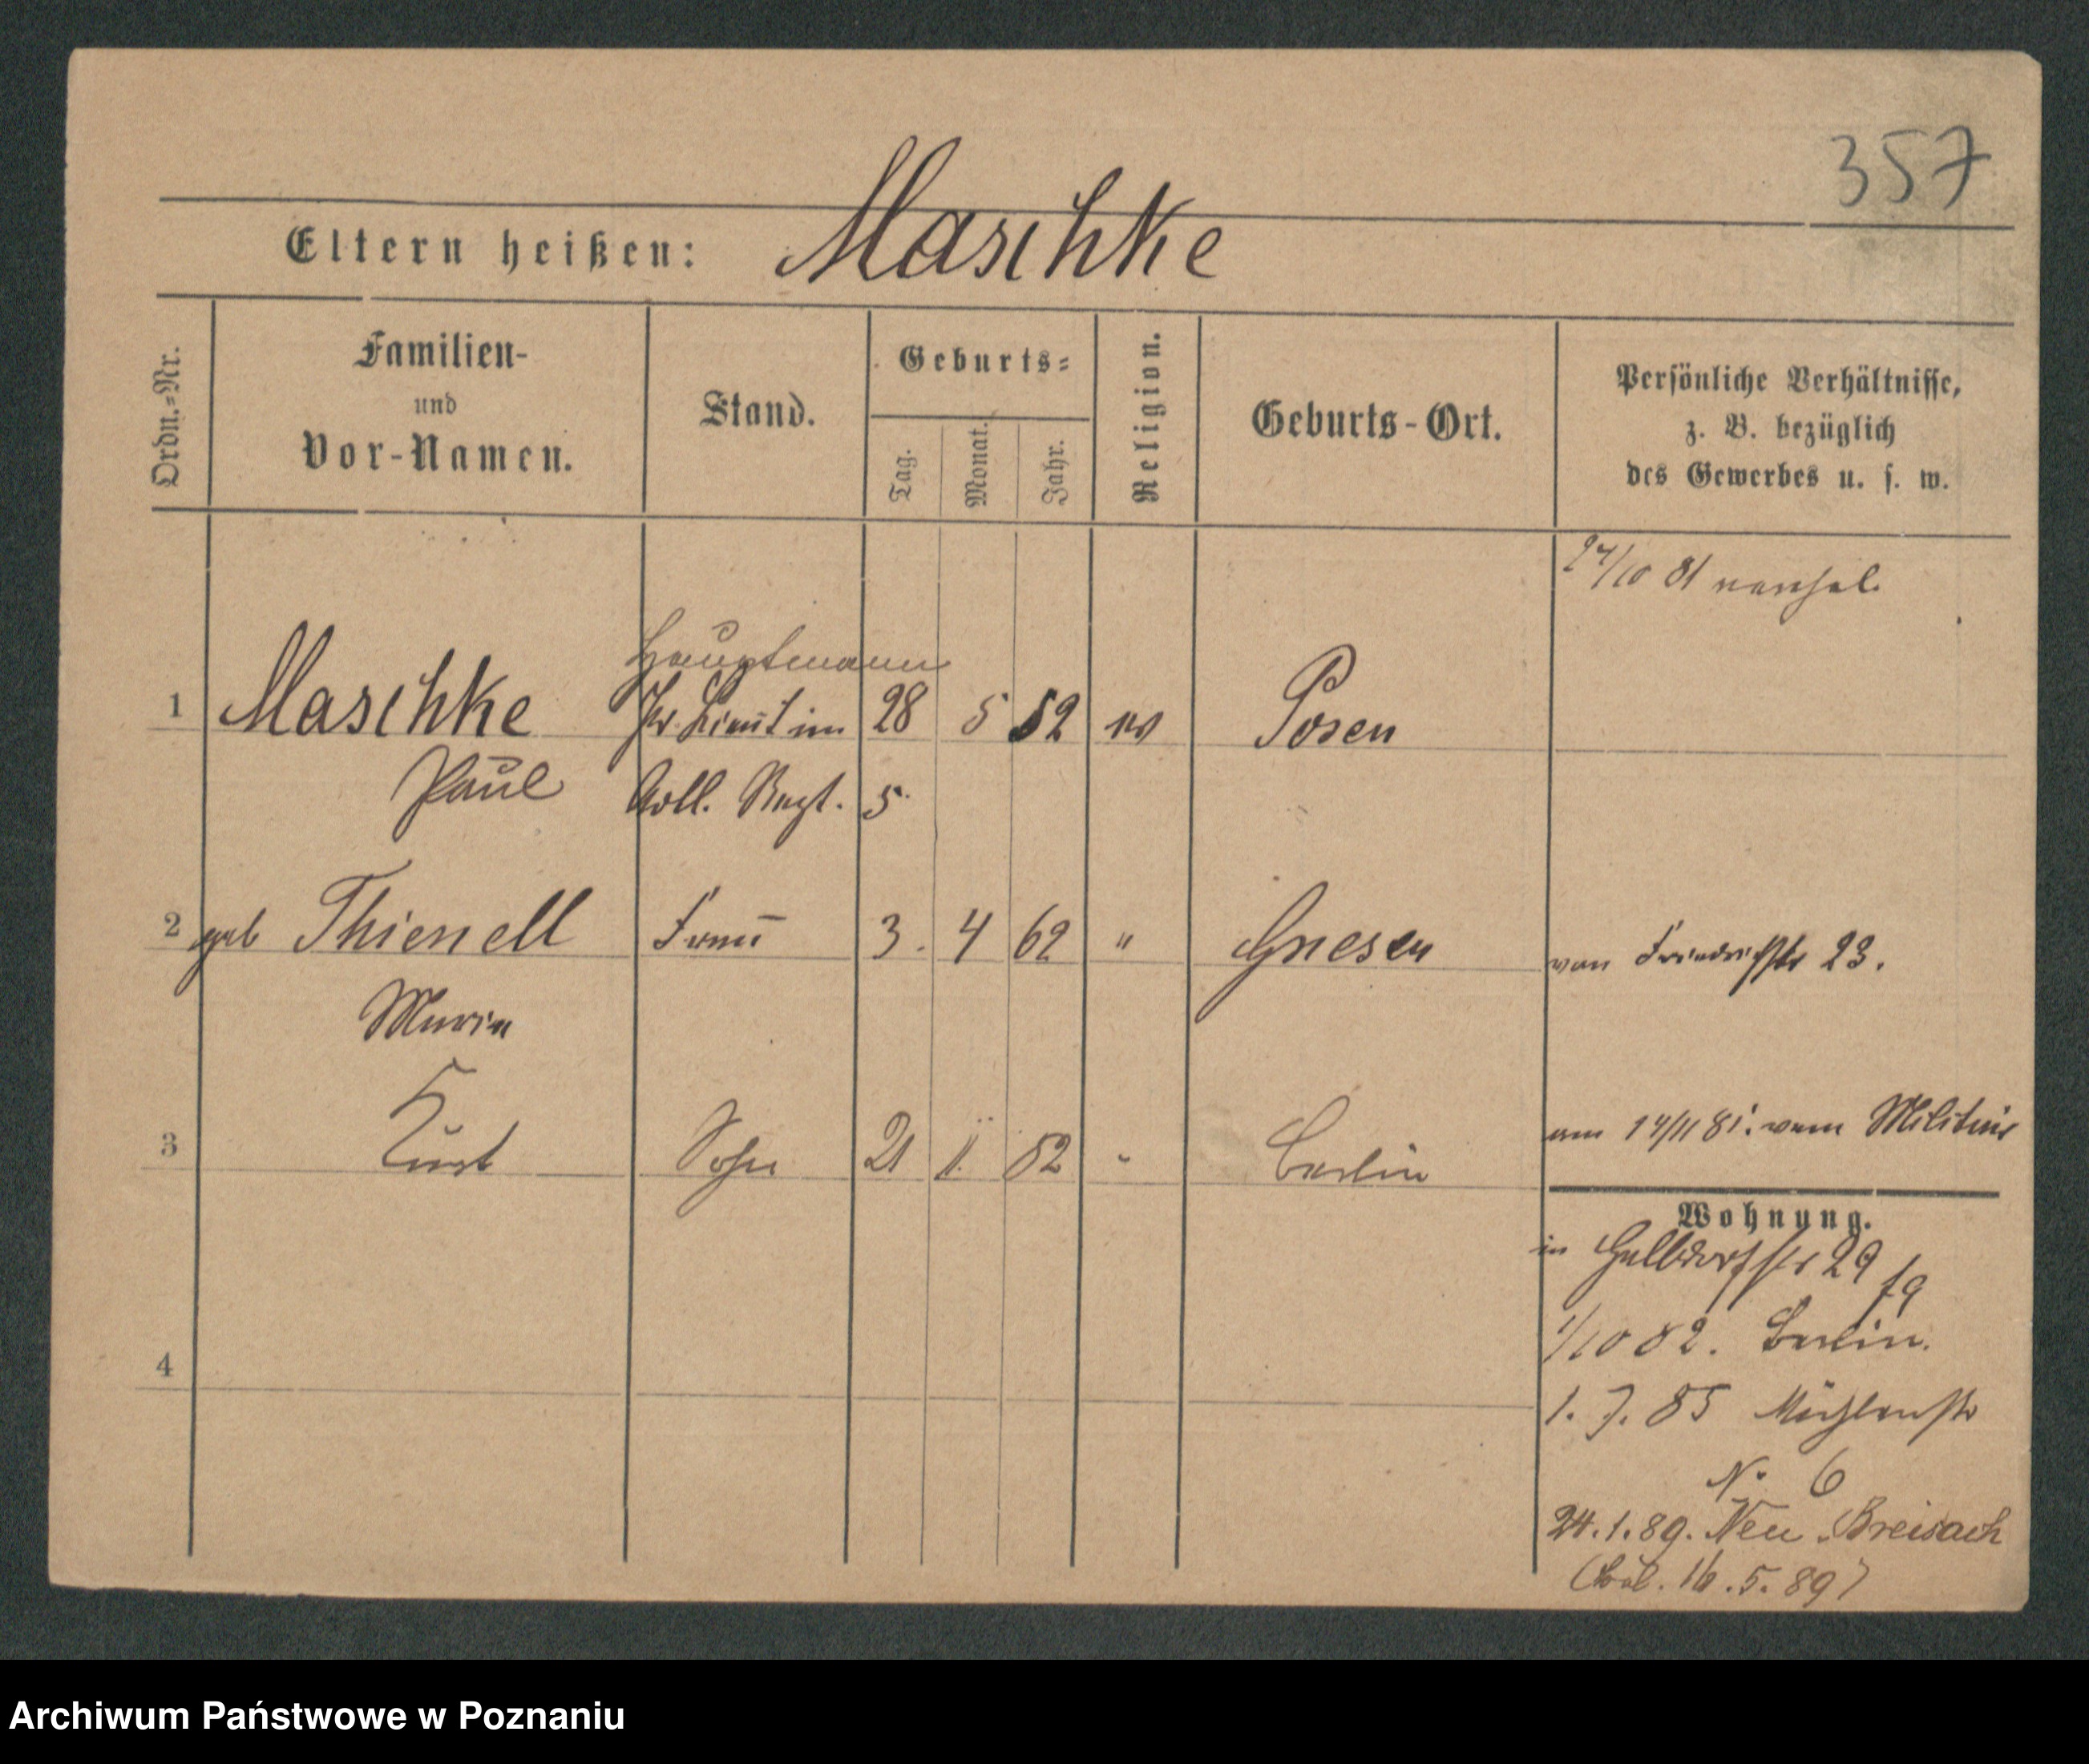 357
Eltern heißen: Maschke
Ordn.-Nr.
Familien-
und
Vor-Namen.
Stand.
Geburts-
Tag.
Monat.
Jahr.
Religion.
Geburts-Ort.
Persönliche Verhältnisse,
z. B. bezüglich
des Gewerbes u. s. w.
27/10 81
Hauptmann
1 Maschke Pr. Lieut im 28 5 52 ev Posen
Paul Regt. 5
2 geb Thienell Frau 3. 4 62 " Gnesen von Friedrichstr 23.
Maria
3 Kurt Sohn 21 1. 82 " Berlin am 14/11 81. vom Militair
Wohnung.
in Halbdorfstr 29
1/10 82. Berlin.
1. 7. 85 Mühlenstr
No 6
24.1.89. Neu Breisach
16.5.89)
4
Archiwum Państwowe w Poznaniu